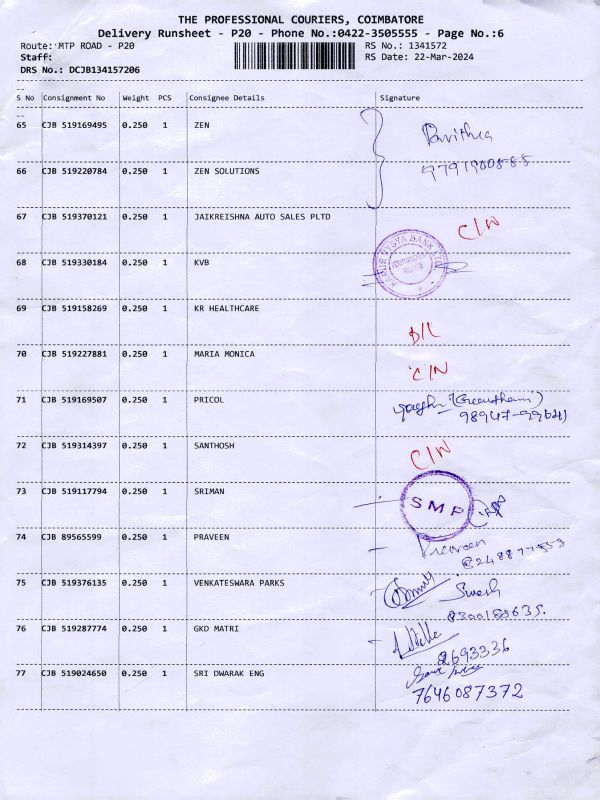 THE PROFESSIONAL COURIERS, COIMBATORE
Delivery Runsheet - P20 - Phone No.:0422-3505555 - Page No.:6
Route: MTP ROAD - P20 RS No.: 1341572
Staff: RS Date: 22-Mar-2024
DRS No.: DCJB134157206
S No Consignment No Weight PCS Consignee Details Signature
65 CJB 519169495 0.250 1 ZEN Pavithra
66 CJB 519220784 0.250 1 ZEN SOLUTIONS
67 CJB 519370121 0.250 1 JAIKREISHNA AUTO SALES PLTD C/N
68 CJB 519330184 0.250 1 KVB KARUR VYSYA BANK LTD
69 CJB 519158269 0.250 1 KR HEALTHCARE D/L
70 CJB 519227881 0.250 1 MARIA MONICA C/N
71 CJB 519169507 0.250 1 PRICOL
72 CJB 519314397 0.250 1 SANTHOSH C/N
73 CJB 519117794 0.250 1 SRIMAN SMP
74 CJB 89565599 0.250 1 PRAVEEN Praveen
75 CJB 519376135 0.250 1 VENKATESWARA PARKS
8300188635.
76 CJB 519287774 0.250 1 GKD MATRI
2693336
77 CJB 519024650 0.250 1 SRI DWARAK ENG
7646087372